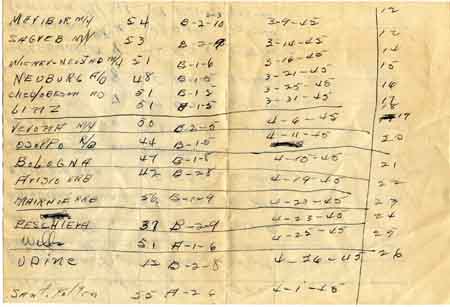 2-3
MARIBOR M/Y 54 B-2-10 3-9-45 12
ZAGREB M/Y 53 B-2-9 3-14-45 12
WIENER-NEUSTAD M/Y 51 B-1-6 3-16-45 14
NEUBURG A/D 48 B-1-5 3-21-45 15
51 B-1-5 3-25-45 16
LINZ 51 A-1-5 3-31-45 18 17
VERONA M/Y 50 B-2-5 4-6-45
OSOPPO A/D 44 B-1-5 4-11-45 20
BOLOGNA 47 B-1-8 4-15-45 21
AVISIO RRB 42 B-2-8 4-19-45 22
RRB 36 B-1-9 4-23-45 23
PESCHIERA 37 B-2-9 4-23-45 24
Wells 51 A-1-6 4-25-45 25
UDINE 42 B-2-8 4-26-45 26
Sant. Polten 55 A-2-6 4-1-45